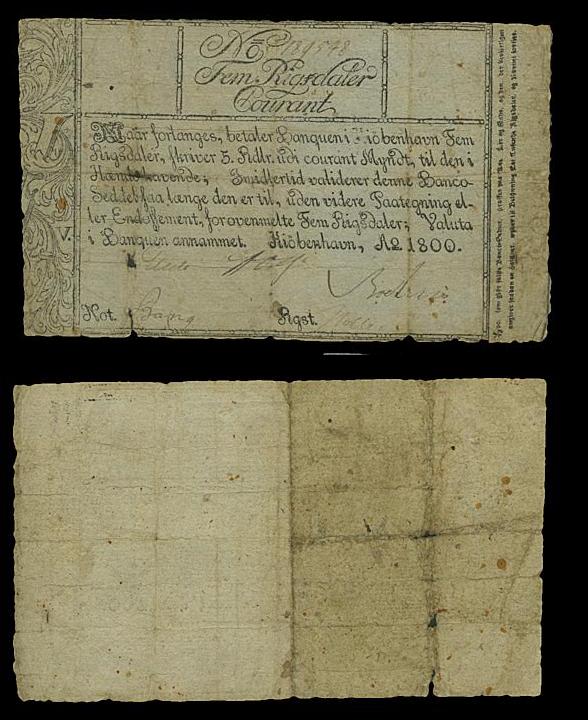 No 189548
Fem Rigsdaler
Courant
Naar forlanges, betaler Banquen i Kiöbenhavn Fem
Rigsdaler, skriver 5. Rdlr. udi courant Myndt, til den i
Hænde havende; Imidlertid validerer denne Banco-
Seddel saa længe den er til, uden videre Paategning el-
ler Endossement, for ovenmelte Fem Rigsdaler; Valuta
i Banquen annammet. Kiöbenhavn, Ao 1800.
V.
Not. Bang Rgst.